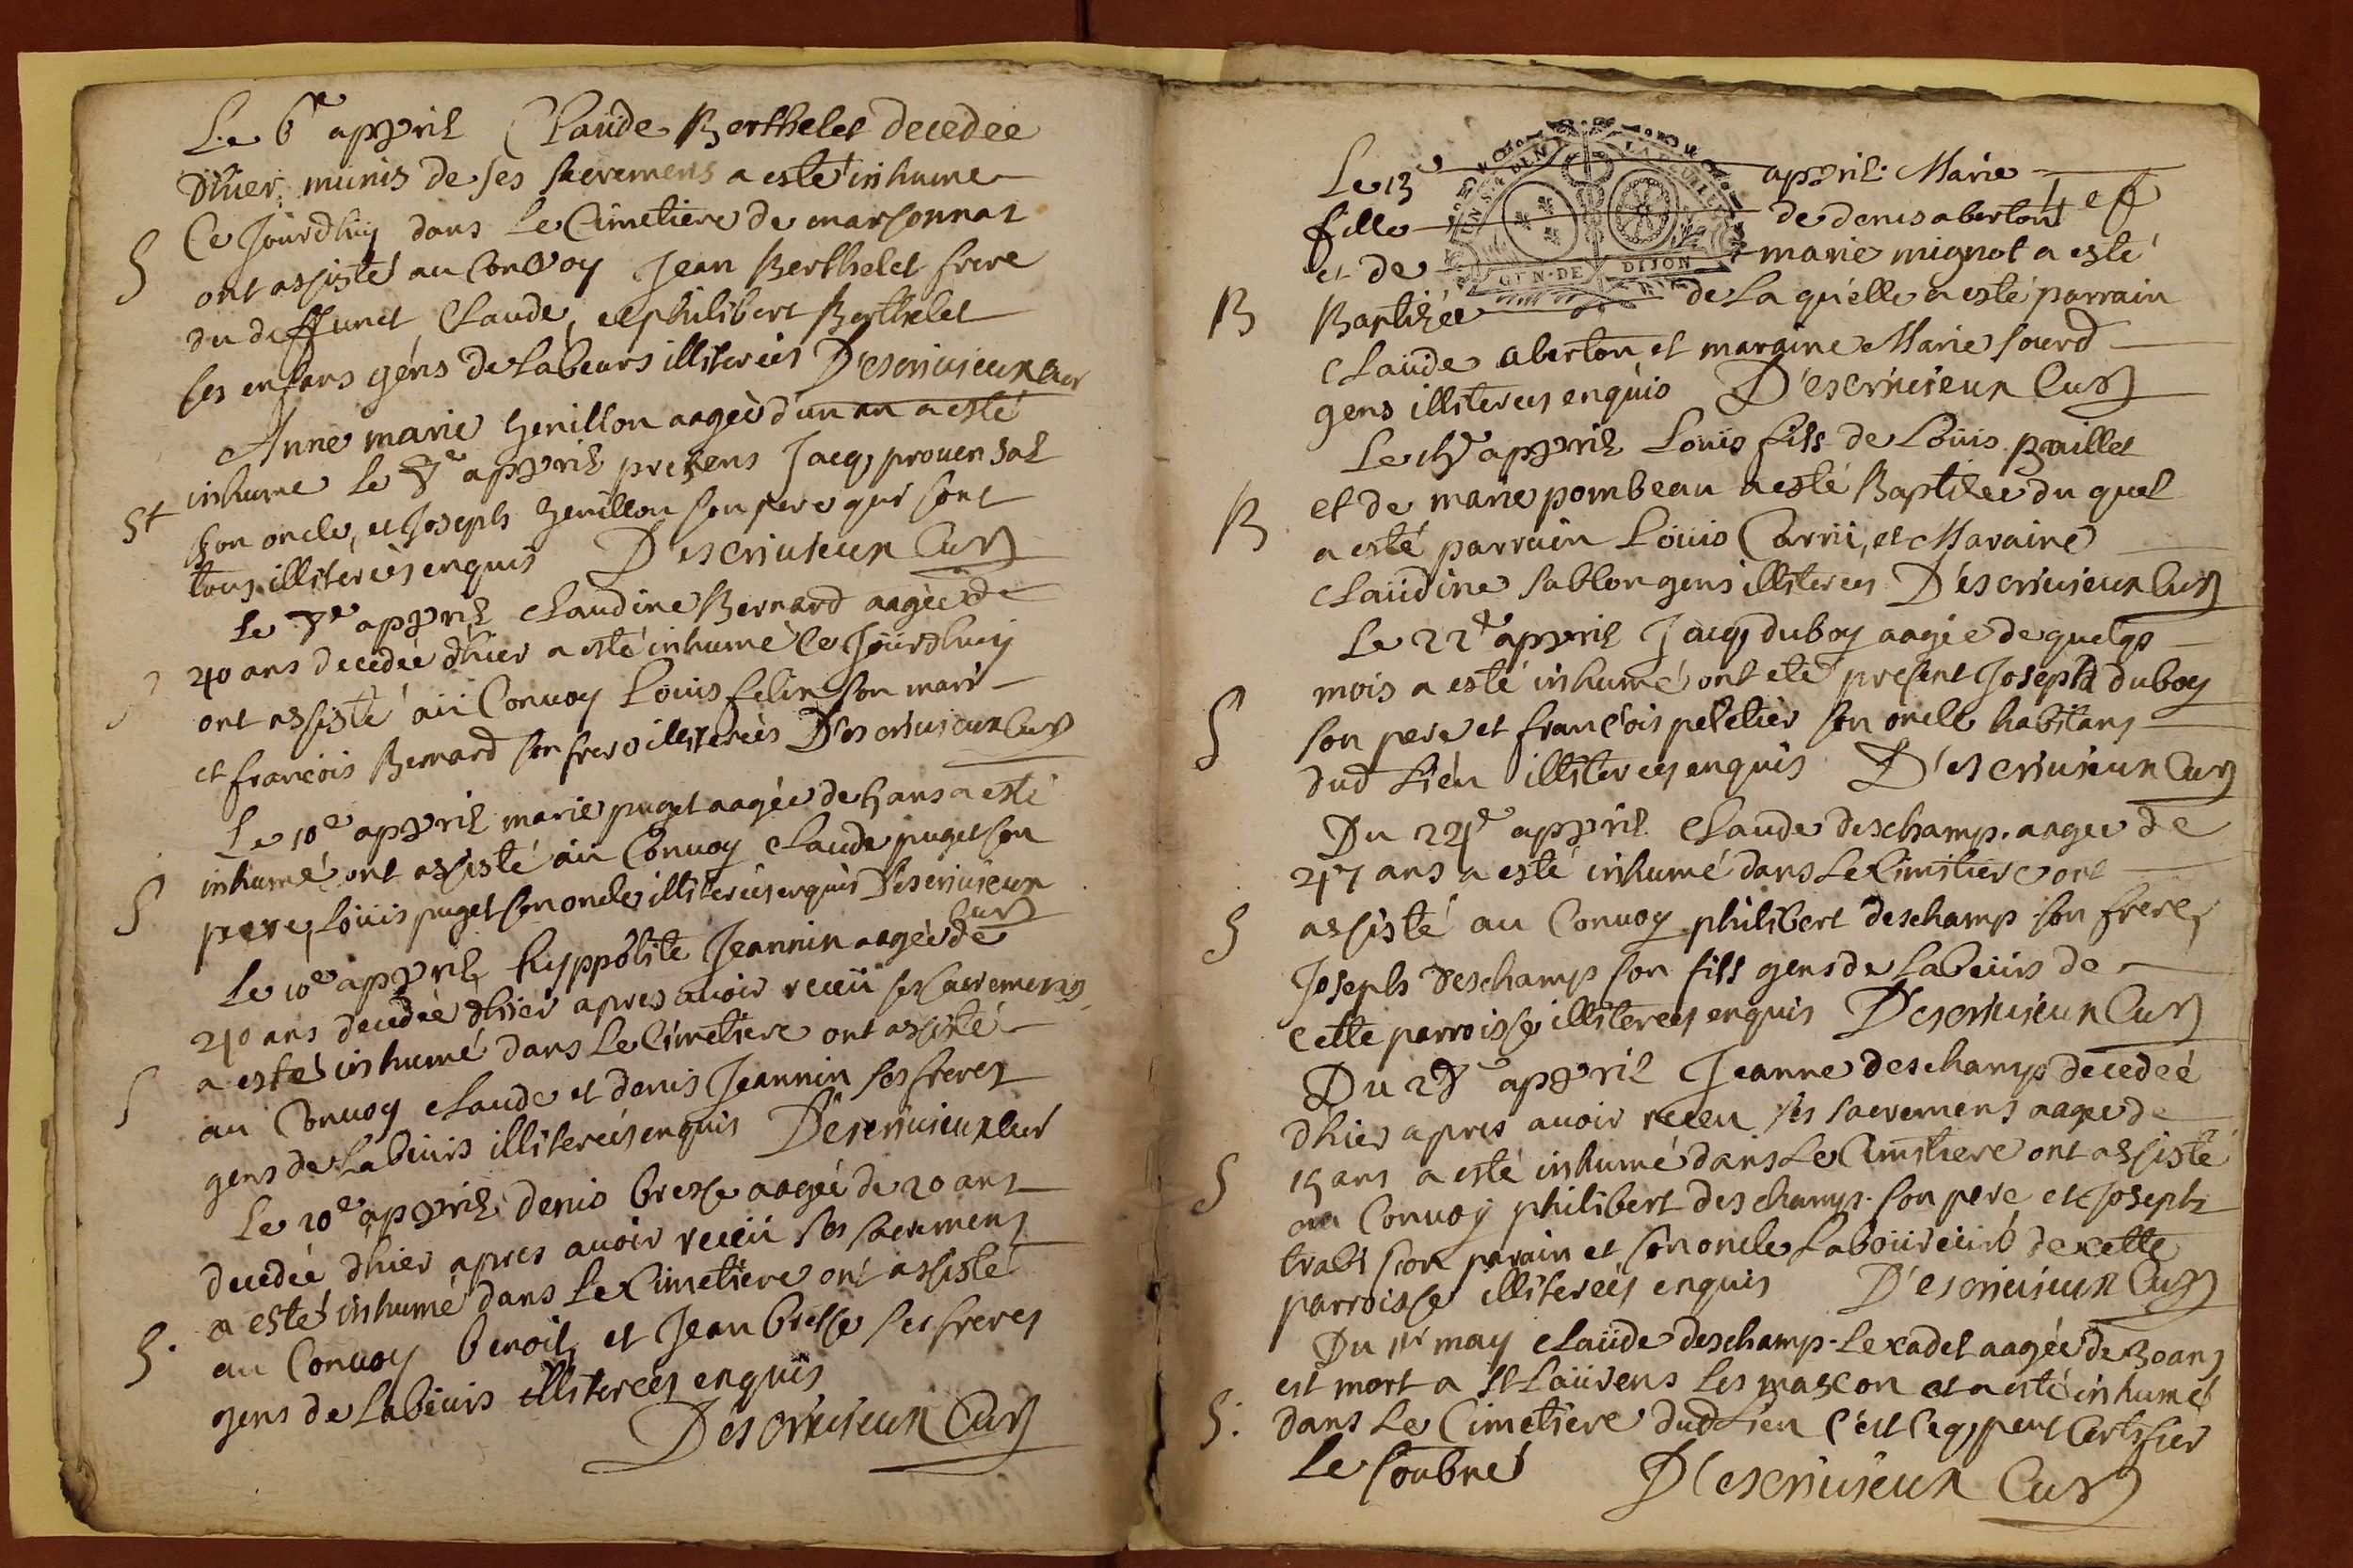 Le 6e appvril Claude Berthelet decedee
Dhier, munis de ses sacremens a esté inhume
S Ce jourdhuy dans Le Cimetiere de marsonnat
ont assisté au Convoy Jean Berthelet frere
du deffunct Claude, et philibert Berthelet
ses enfans gens de Labeurs illiterées D'escriuieux Cur
Anne marie Genillon aagée d'un an a esté
inhume Le 8e appvril presens Jacq, prouensal
St son oncle, et Joseph Genillon son pere qui sont
tous illiterées enquis D'escriuieux Curé
Le 8e appvril claudine Bernard aagée de
40 ans decedée dhier a esté inhumé Ce Jourdhuy
ont assisté au Convoy Louis felin son mari
et francois Bernard son frere illiterées D'escriuieux Curé
Le 10e appvril marie puget aagée de 5 ans a esté
S inhumé ont assisté au Convoy claude puget son
pere, Louis puget son oncle illiterées enquis D'escriuieux
Curé
Le 10e appvril hyppolite Jeannin aagée de
40 ans decedée dhier apres auoir receu ses sacremens
S a esté inhumé dans Le Cimetiere ont assisté
au Convoy claude et denis Jeannin ses freres
gens de Labeurs illiterées enquis D'escriuieux Cur
Le 10e appvril denis bresse aagée de 20 ans
decedée dhier apres auoir receu ses sacremens
a esté inhumé dans Le Cimetiere ont assisté
S. au Convoy benoit et Jean bresse ses freres
gens de Labeurs illiterées enquis
D'escriuieux Curé
Le 13e appvril Marie
fille de denis aberton
et de marie mignot a esté
GEN·DE DIJON
B Baptizée de Laquelle a esté parrain
claude aberton et maraine Marie sourd
gens illiterees enquis D'escriuieux Curé
Le appvril Louis fils de Louis paillet
B et de marie pombeau a esté Baptizee du quel
a esté parrain Louis Carri, et Maraine
claudine sablon gens illiterees D'escriuieux Curé
Le 22e appvril Jacq, duboy aagée de quelqs
mois a esté inhumé ont eté present Joseph duboy
S son pere et francois peletier son oncle habitans
dud Lieu illiterees enquis D'escriuieux Curé
Du 24e appvril Claude deschamp. aagee de
47 ans a esté inhumé dans Le Cimitiere ont
S assisté au Convoy philibert deschamp son frere,
Joseph deschamps son fils gens de Labeurs de
Cette parroisse illiterees enquis D'escriuieux Curé
Du 28e appvril Jeanne deschamps decedeé
dhier apres auoir receu ses sacremens aagee de
S 15 ans a esté inhumé dans Le Cimitiere ont assisté
au Convoy philibert deschamps son pere et Joseph
son parain et son oncle Laboureurs de cette
parroisse illiterées enquis D'escriuieux Curé
Du 1er may claude deschamp. Le cadet aagée de 30 ans
est mort a St Laurens Les mascon et a esté inhumé
S. dans Le Cimetiere dud Lieu C'est Ceq, peut Certifier
Le soubné D'escriuieux Curé